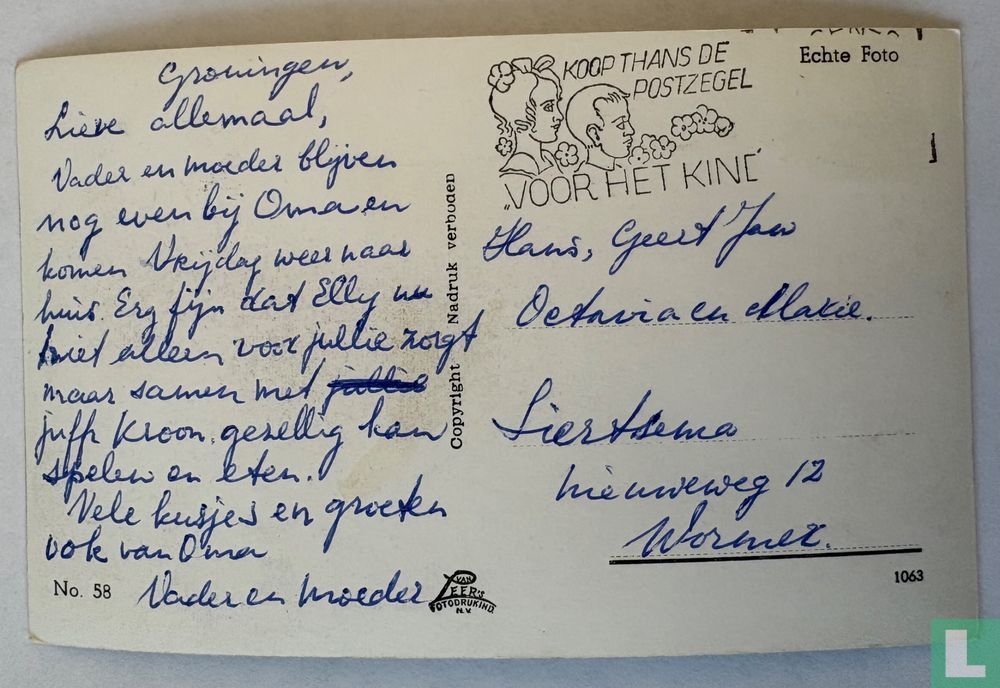 Groningen,
Lieve allemaal,
Vader en moeder blijven
nog even bij Oma en
komen Vrijdag weer naar
huis. Erg fijn dat Elly nu
niet alleen voor jullie zorgt
maar samen met jullie
juffr Kroon, gezellig kan
spelen en eten.
Vele kusjes en groeten
ook van Oma
Vader en Moeder
No. 58
VAN
LEER'S
FOTODRUKIND.
N.V.
Copyright Nadruk verboden
KOOP THANS DE
POSTZEGEL
„VOOR HET KIND
Echte Foto
Hans, Geert Jan
Octavia en Marie.
Siertsema
Nieuweweg 12
Wormer.
1063
L